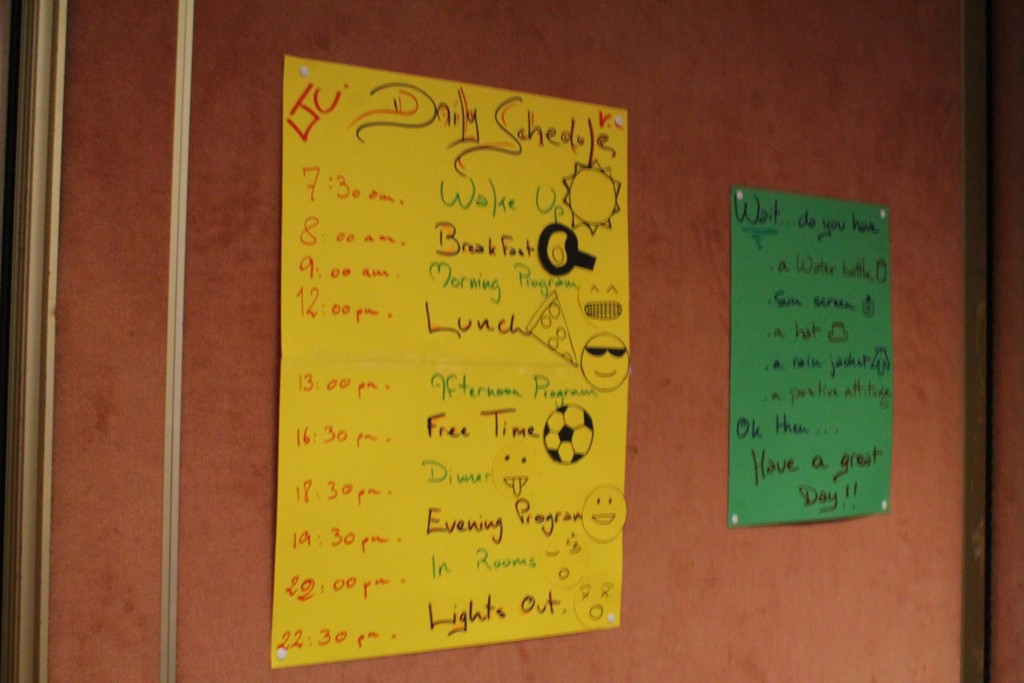 LJC. Daily Schedule
7:30 am. Wake Up
8:00 am. Breakfast
9:00 am. Morning Program
12:00 pm. Lunch
13:00 pm. Afternoon Program
16:30 pm. Free Time
18:30 pm. Dinner
19:30 pm. Evening Program
20:00 pm. In Rooms
22:30 pm. Lights Out.
Wait... do you have
. a Water bottle
. Sun screen
. a hat
. a rain jacket
. a positive attitude
Ok then...
Have a great
Day!!